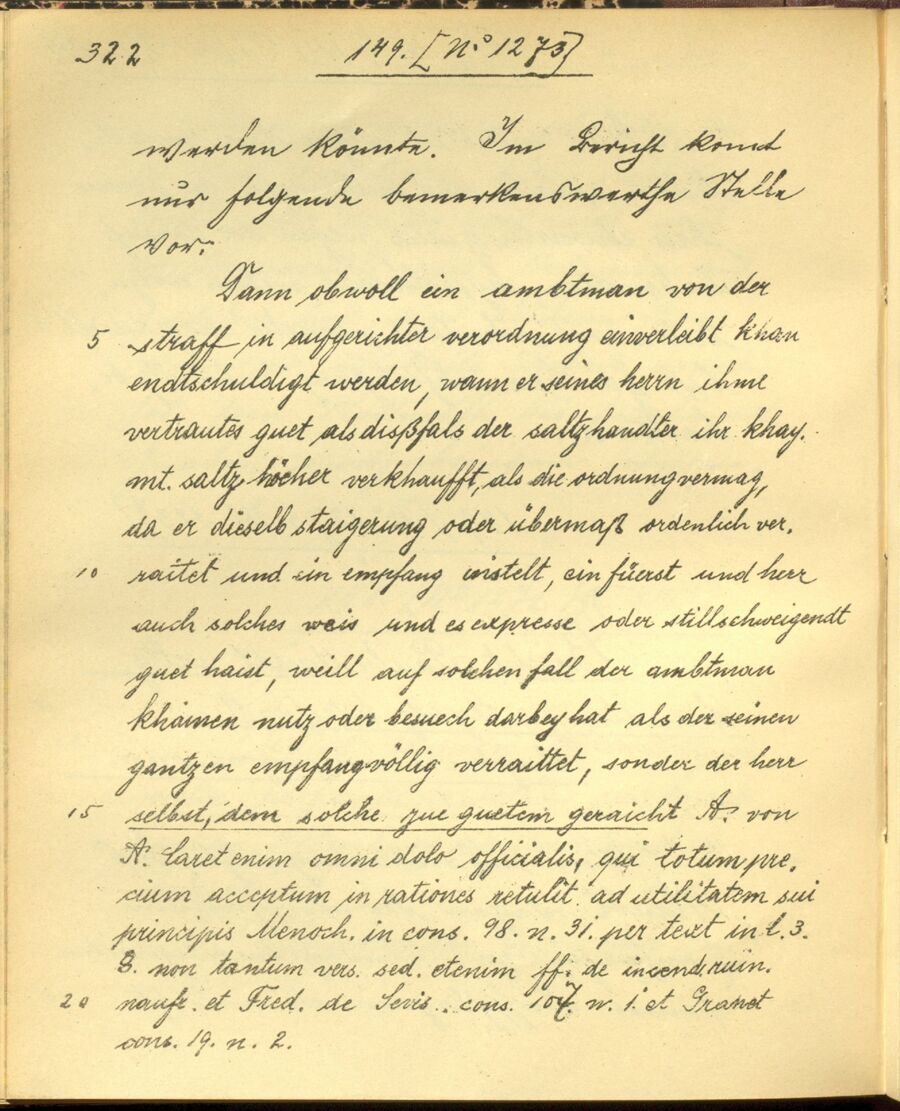 322
149. [N° 1273]
werden könnte. Im Bericht komt
nur folgende bemerkenswerthe Stelle
vor:
Dann obwoll ein ambtman von der
5 straff in aufgerichter verordnung einverleibt khan
endtschuldigt werden, wann er seines herrn ihme
vertrautes guet als dißfals der saltzhandter ihr khay.
mt. saltz höcher verkhaufft, als die ordnung vermag,
da er dieselb staigerung oder übermaß ordenlich ver.
10 raitet und ein empfang instelt, ein füerst und herr
auch solches weis und es expresse oder stillschweigendt
guet haist, weill auf solchen fall der ambtman
khainen nutz oder besuech darbey hat als der seinen
gantzen empfang völlig verraittet, sonder der herr
15 selbst, dem solche zue guetem geraicht A. von
A. Caret enim omni dolo officialis, qui totum pre.
cium acceptum in rationes retulit ad utilitatem sui
principis Menoch. in cons. 98. n. 31. per text in l. 3.
§. non tantum vers. sed. etenim ff. de incend. ruin.
20 naufr. et Fred. de Sevis. cons. 107. n. 1. et Granet
cons. 19. n. 2.